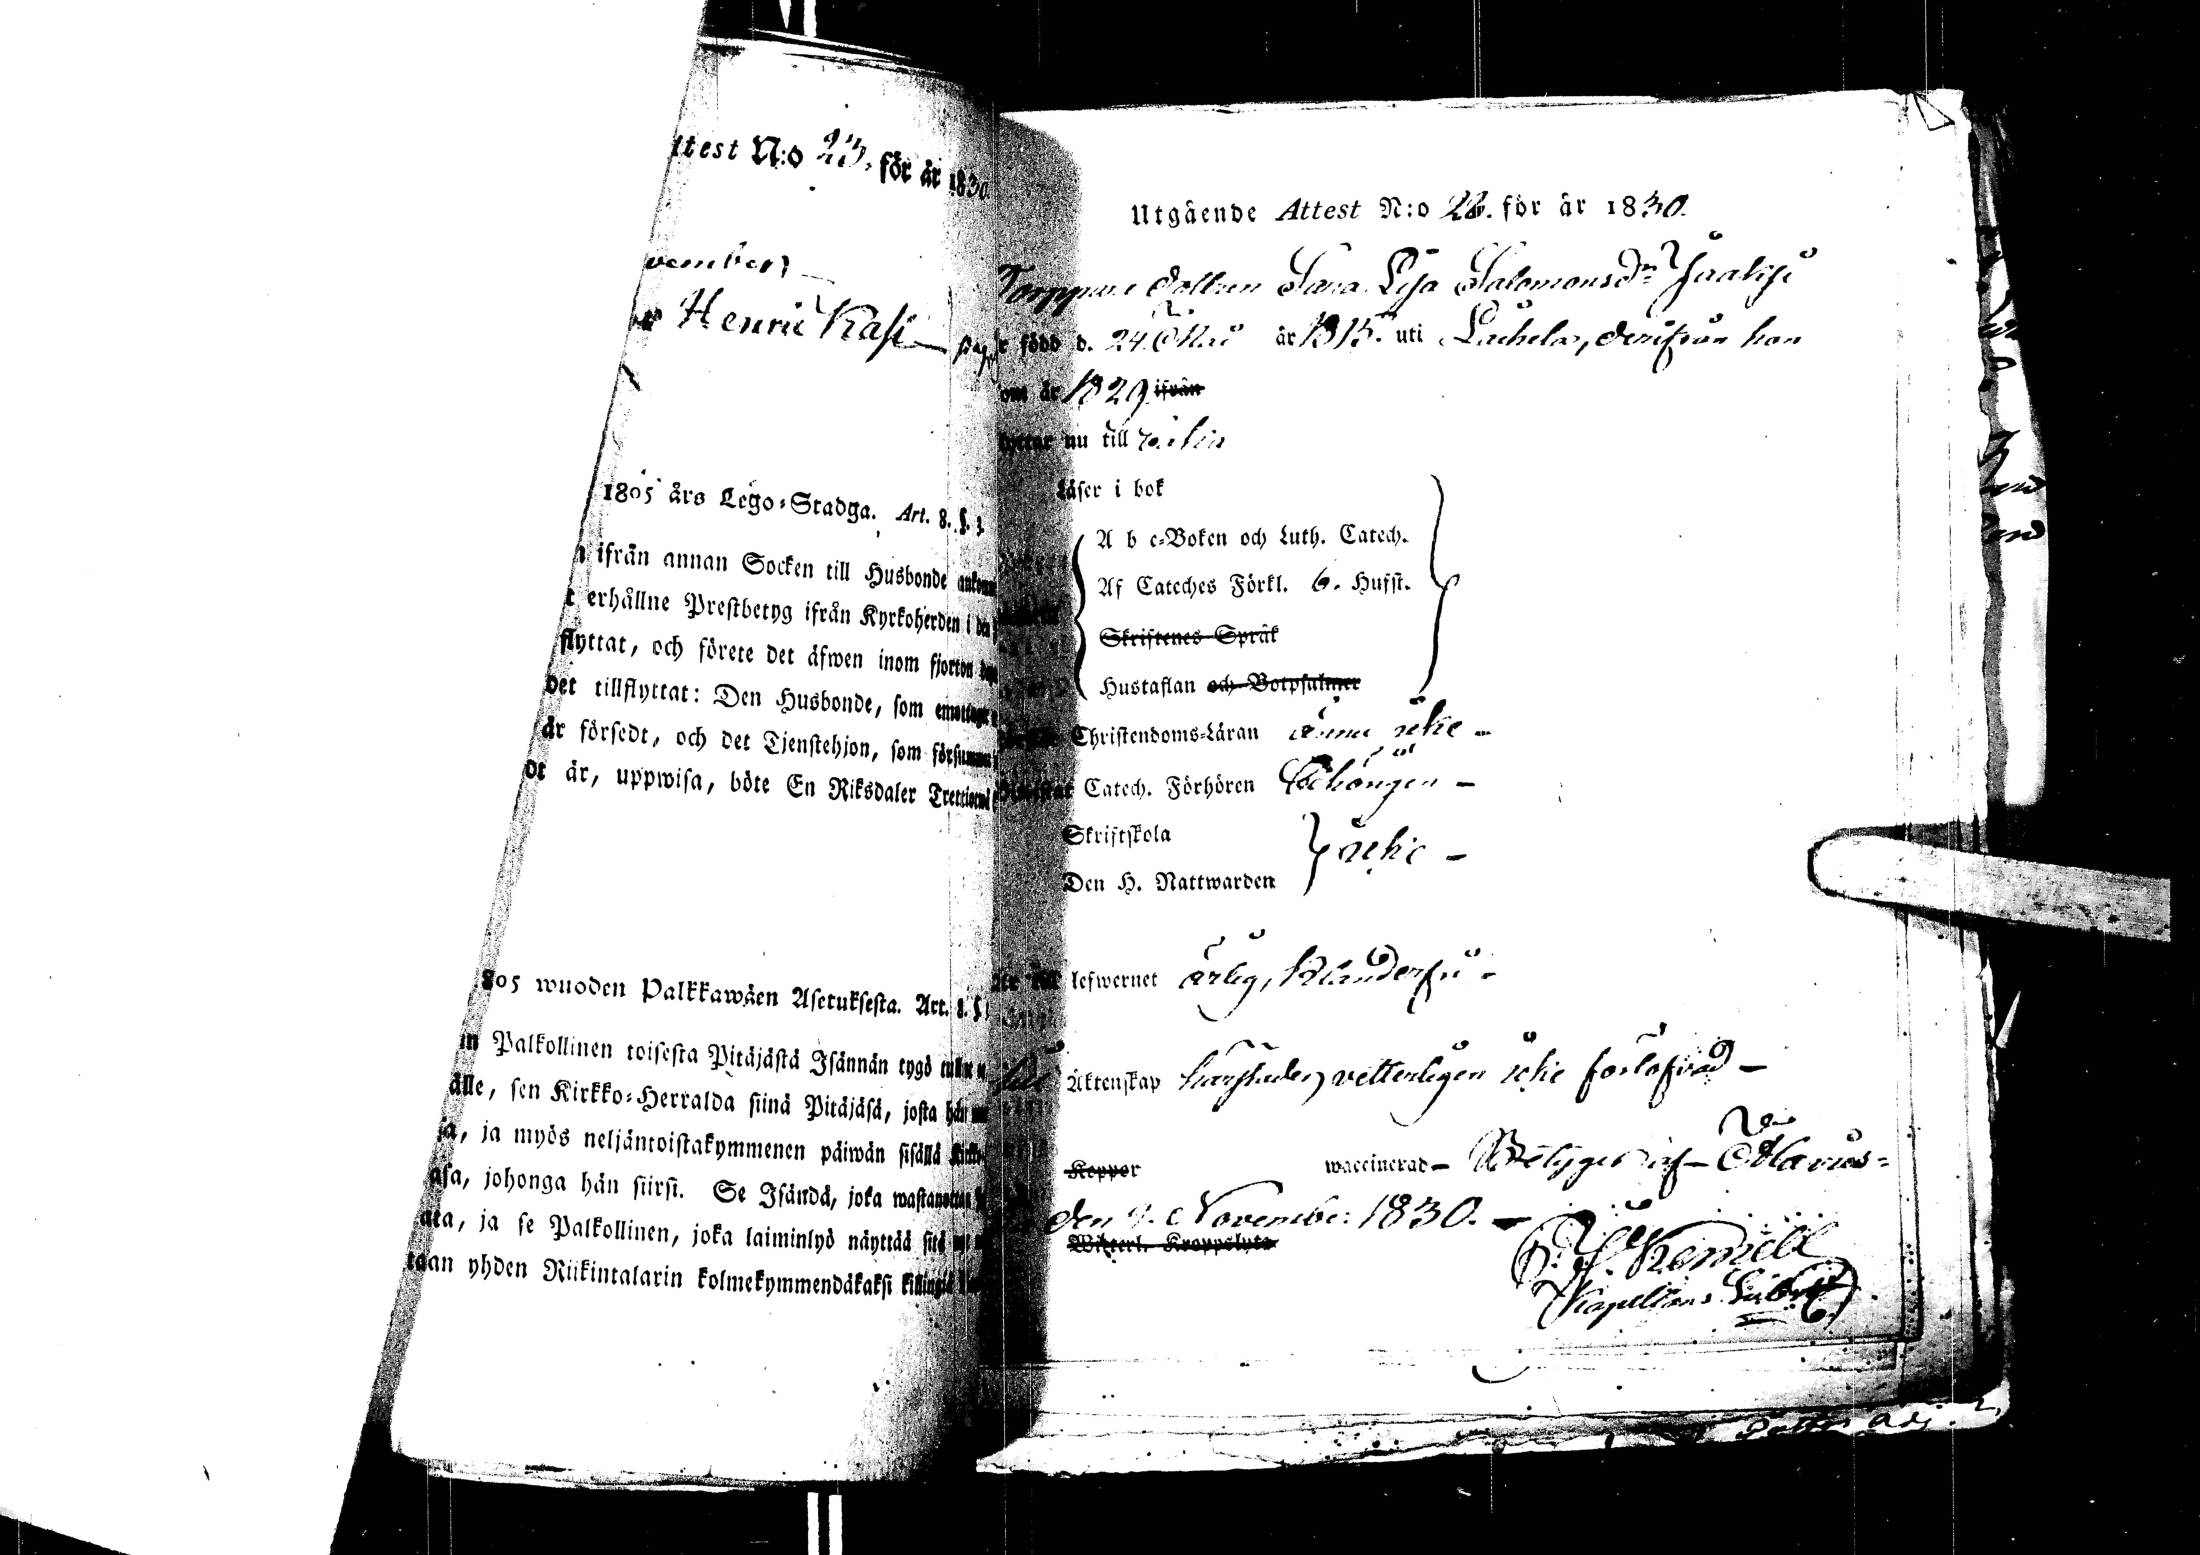 ttest N:o 23. för år 1830
vember
Henric Kasi
1805 års Lego-Stadga. Art. 8. §. 3.
ifrån annan Socken till Husbonde ankomm
t erhållne Prestbetyg ifrån Kyrkoherden i den
flyttat, och förete det äfwen inom fjorton
det tillflyttat: Den Husbonde, som emottagit
är försedt, och det Tjenstehjon, som försumm
dt är, uppwisa, böte En Riksdaler Trettiotwå
805 wuoden Palkkawäen Asetuksesta. Art. 8. §
in Palkollinen toisesta Pitäjästä Isännän tygö tullut
älle, sen Kirkko-Herralda siinä Pitäjäsä, josta hän
a, ja myös neljäntoistakymmenen päiwän sisällä
asa, johonga hän siirsi. Se Isändä, joka wastanottaa
ata, ja se Palkollinen, joka laiminlyö näyttää sitä
taan yhden Riikintalarin kolmekymmendäkaksi killingiä
Utgående Attest N:o 22. för år 1830.
dottren Sara Lisa Salomonsdr Jaakji
r född d. 24 Maii år 1815. uti Lachela, derifrån hon
om år 1829 ifrån
lyttar nu till
Läser i bok
A b c-Boken och Luth. Catech.
Af Cateches Förkl. 6. Hufst.
Skriftenes Språk
Hustaflan och Botpsalmer
Christendoms-Läran ännu icke -
Catech. Förhören behörigen -
Skriftskola
Den H. Nattwarden
icke -
lefwernet ärlig, klanderfri -
Äktenskap hinderslös, vetterligen icke förlofvad -
Kopper waccinerad - Betygas af - Olavus -
den 9. November 1830. -
Wikterl. Kroppslyte
Kapellans